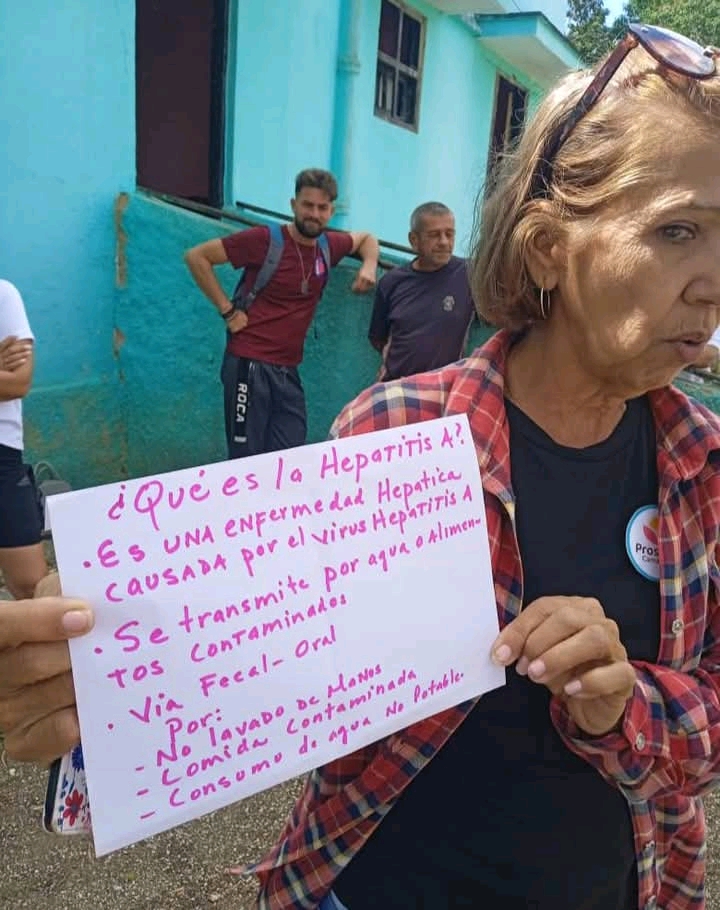 ROCA
¿Qué es la HepaTiTis A?
• Es UNA enfermedad Hepatica
CAUSADA por el virus HepaTiTis A
• Se transmite por agua o Alimen-
Tos ConTaminados
• Via Fecal-Oral
Por:
- No lavado de Manos
- Comida Contaminada
- Consumo de agua No Potable.